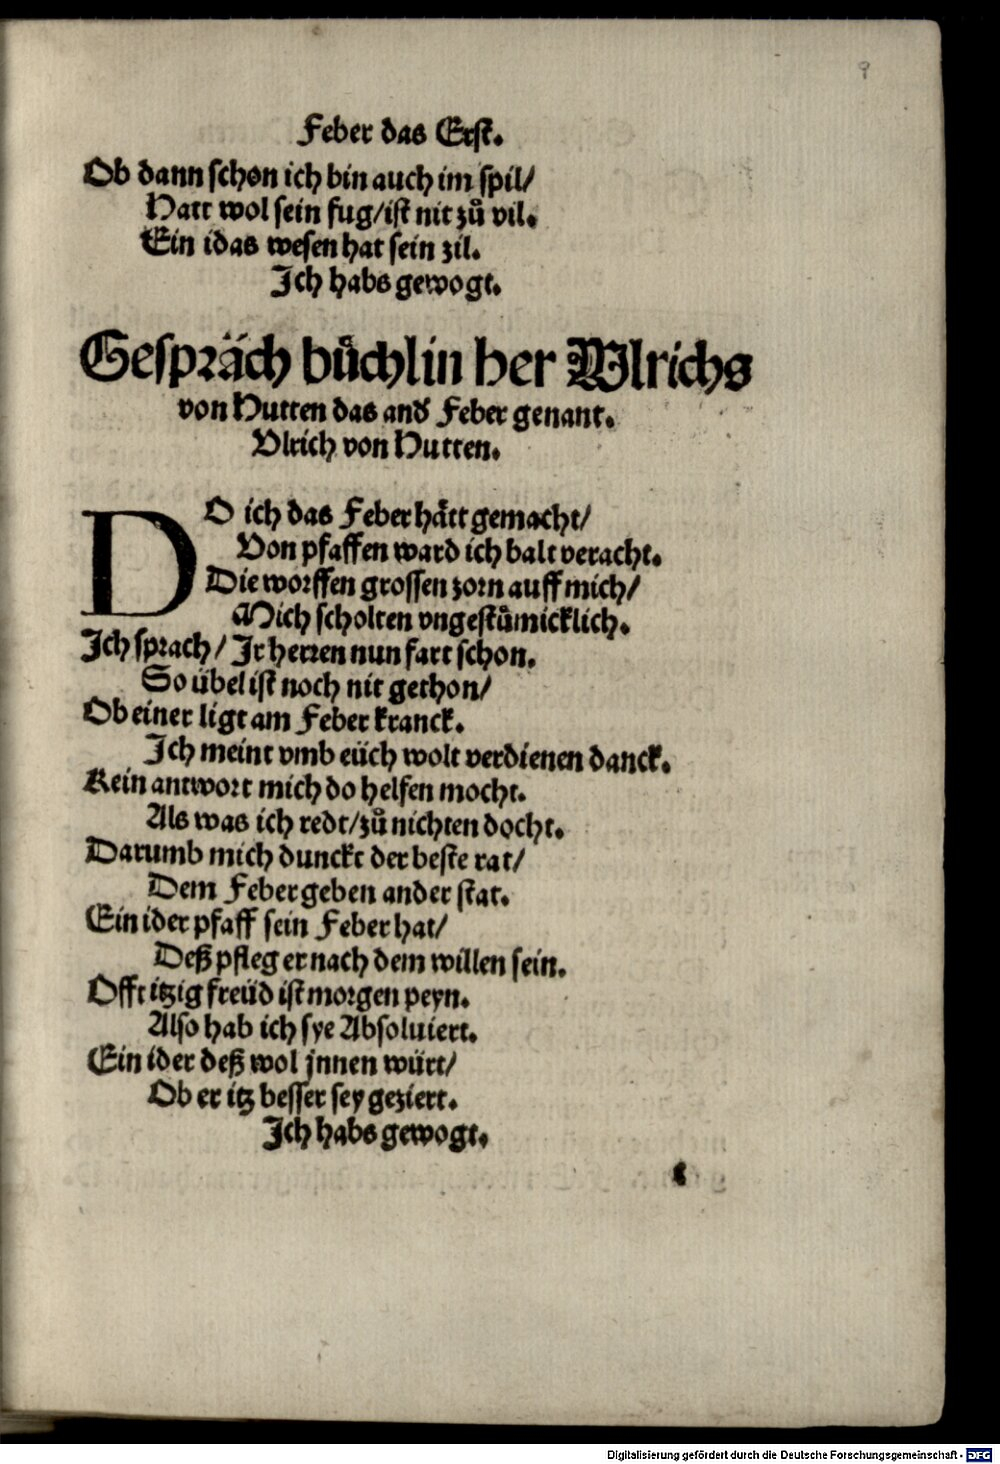 9
Feber das Erst.
Ob dann schon ich bin auch im spil/
Hatt wol sein fug/ist nit zů vil.
Ein idas wesen hat sein zil.
Ich habs gewogt.
Gespräch bůchlin her Wlrichs
von Hutten das andʼ Feber genant.
Vlrich von Hutten.
DO ich das Feber hått gemacht/
Von pfaffen ward ich balt veracht.
Die worffen grossen zorn auff mich/
Mich scholten vngestůmicklich.
Ich sprach/ Ir herren nun fart schon.
So übel ist noch nit gethon/
Ob einer ligt am Feber kranck.
Ich meint vmb eüch wolt verdienen danck.
Kein antwort mich do helfen mocht.
Als was ich redt/zů nichten docht.
Darumb mich dunckt der beste rat/
Dem Feber geben ander stat.
Ein ider pfaff sein Feber hat/
Deß pfleg er nach dem willen sein.
Offt itzig freüd ist morgen peyn.
Also hab ich sye Absoluiert.
Ein ider deß wol jnnen würt/
Ob er itz besser sey geziert.
Ich habs gewogt.
Digitalisierung gefördert durch die Deutsche Forschungsgemeinschaft - DFG